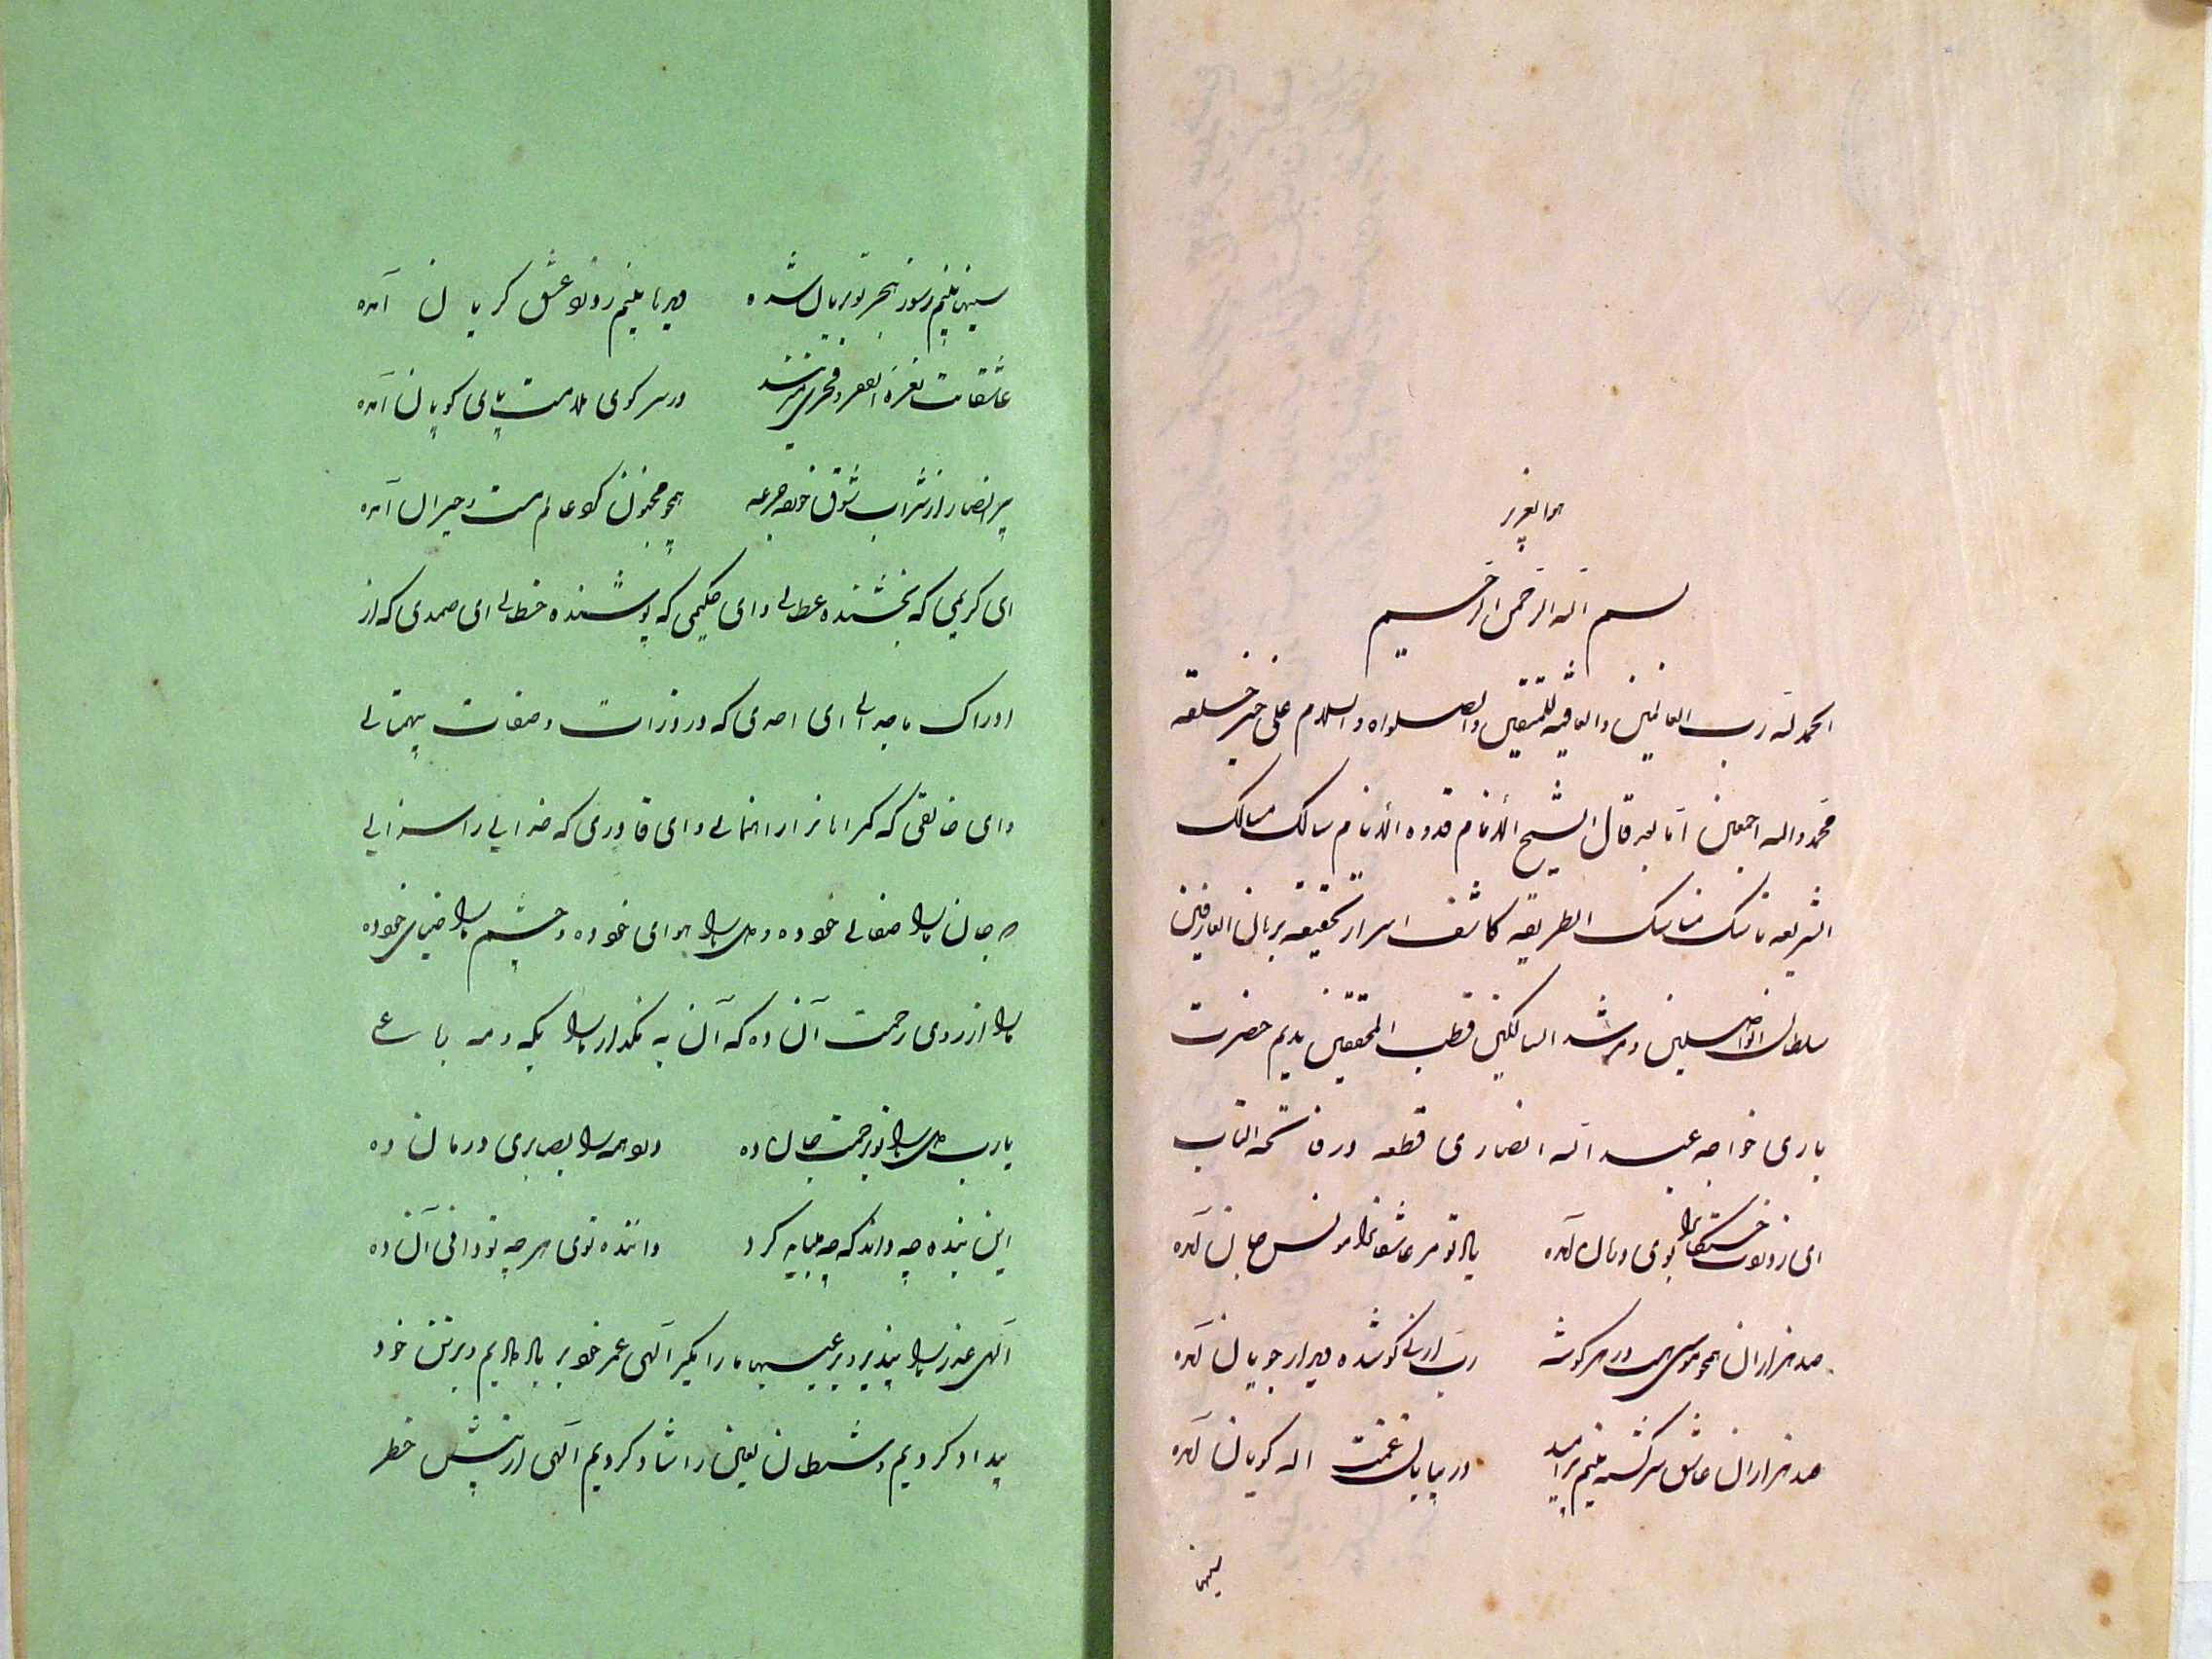 هو العزیز
بسم الله الرحمن الرحیم
الحمد لله رب العالمین والعاقبه للمتقین والصلواه والسلام علی خیر خلقه
محمد واله اجمعین اما بعد قال الشیخ الانام قدوه الانام سالک مسالک
الشریعه ناسک مناسک الطریقه کاشف اسرار تحقیقه برهان العارفین
سلطان الواصلین و مرشد السالکین قطب المحققین ندیم حضرت
باری خواجه عبد الله انصاری قطعه در فاتحه الکتاب
ای ز دردت خستگانرا بوی درمان آمده یاد تو مر عاشقانرا مونس جان آمده
صد هزاران همچو موسی مست در هر گوشه رب ارنی گو شده دیدار جویان آمده
صد هزاران عاشق سرگشته بینم بر امید در بیابان غمت الله گویان آمده
سینها
سینها بینم ز سوز هجر تو بریان شده دیدها بینم ز درد عشق گریان آمده
عاشقانت نعره الفقر و فخری میزنند در سر کوی ملامت پای کوبان آمده
پیر انصار از شراب شوق خورده جرعه همچو مجنون گرد عالم مست و حیران آمده
ای کریمی که بخشنده عطایی و ای حکیمی که پوشنده خطایی ای صمدی که از
ادراک ما جدایی ای احدی که در ذات و صفات بیهمتایی
و ای خالقی که گمراهانرا راهنمایی و ای قادری که خدایی را سزایی
جان ما را صفای خود ده و دل ما را هوای خود ده و چشم ما را ضیای خود ده
ما را از روی رحمت آن ده که آن به مگذار ما را بکه و مه رباعی
یارب دل ما را تو برحمت جان ده درد همه را بصابری درمان ده
این بنده چه داند که چه میباید کرد داننده توی هر چه تو دانی آن ده
الهی عذر ما را بپذیر و بر عیبهای ما را مگیر الهی عمر خود بر باد دادیم و بر تن خود
بیداد کردیم و شیطان لعین را شاد کردیم الهی از پیش خطر